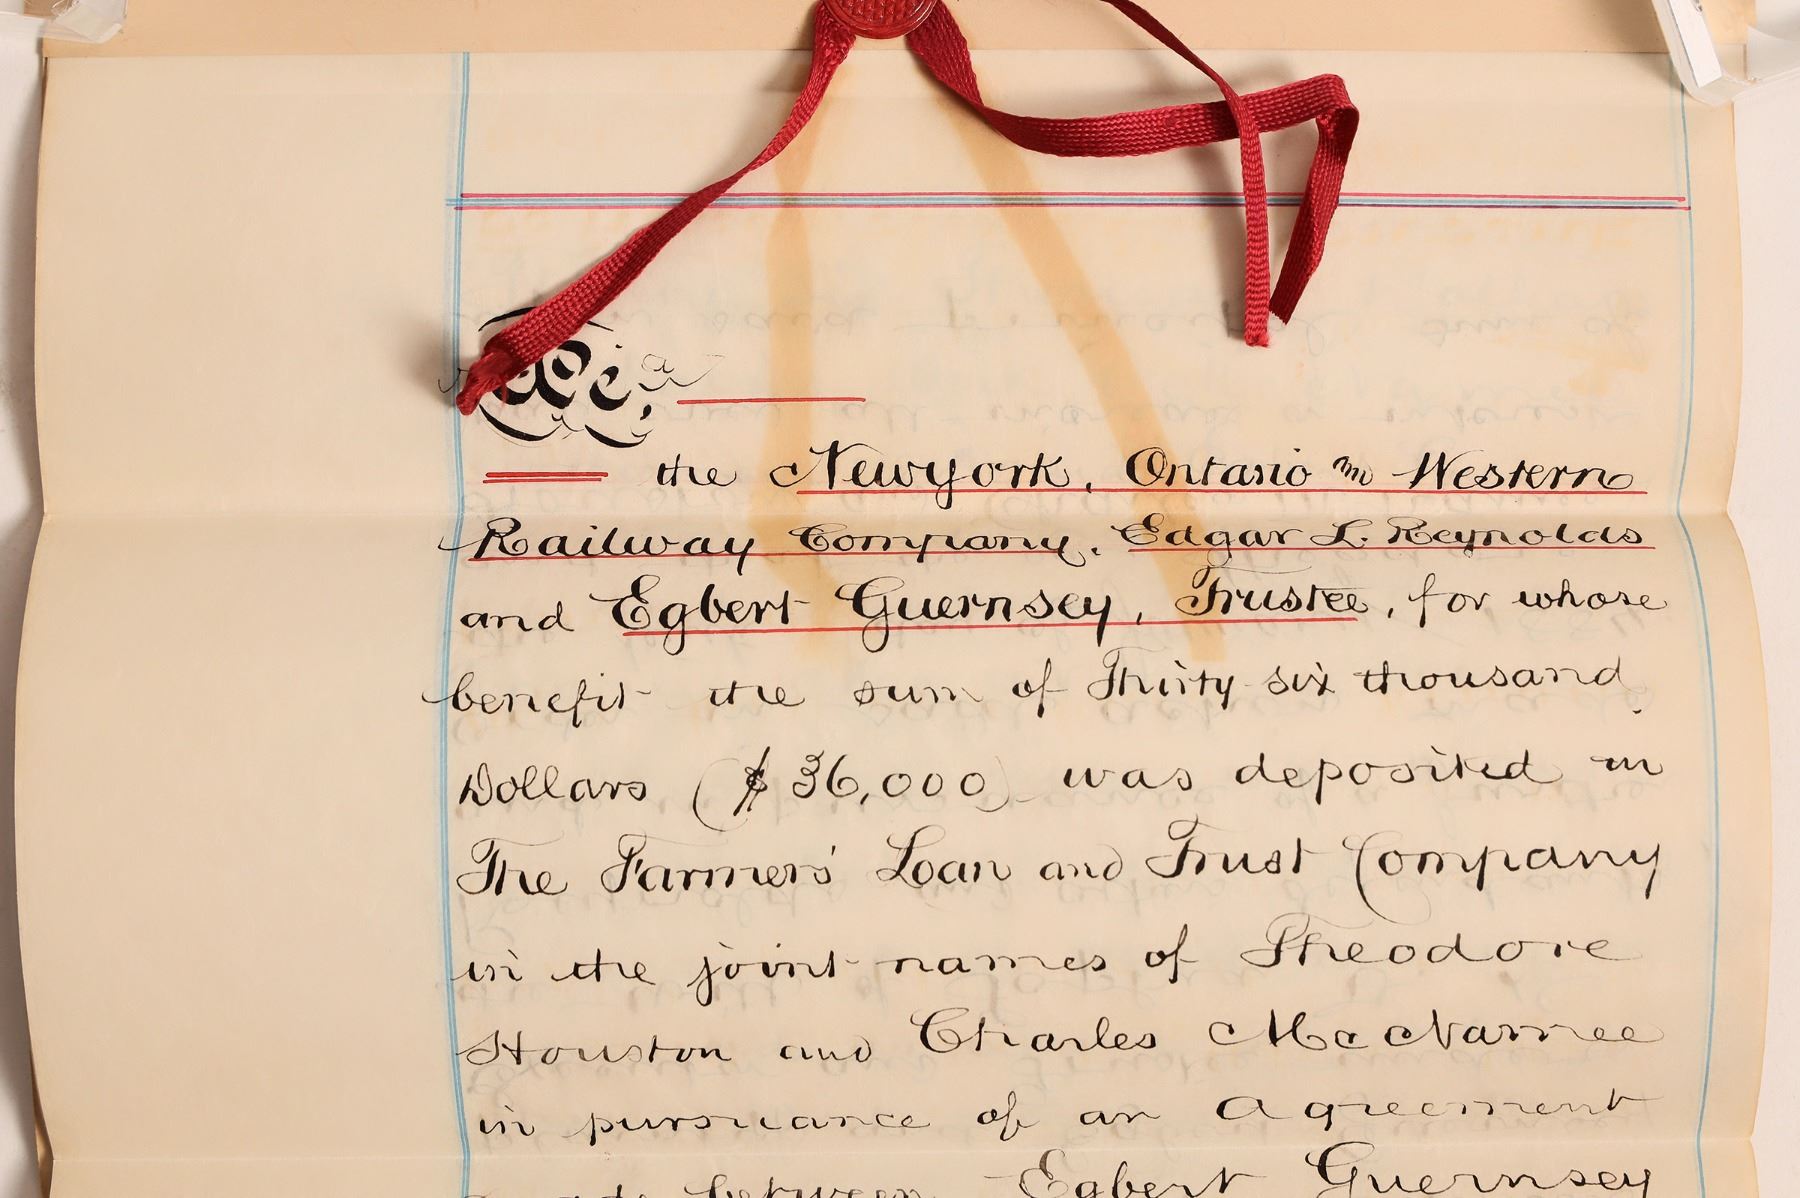 We,
the New York, Ontario and Western
Railway Company, Edgar L. Reynolds
and Egbert Guernsey, Trustee, for whose
benefit the sum of Thirty six thousand
Dollars ($36,000) was deposited in
The Farmers' Loan and Trust Company
in the joint names of Theodore
Houston and Charles McNamee
in pursuance of an Agreement
made between Egbert Guernsey